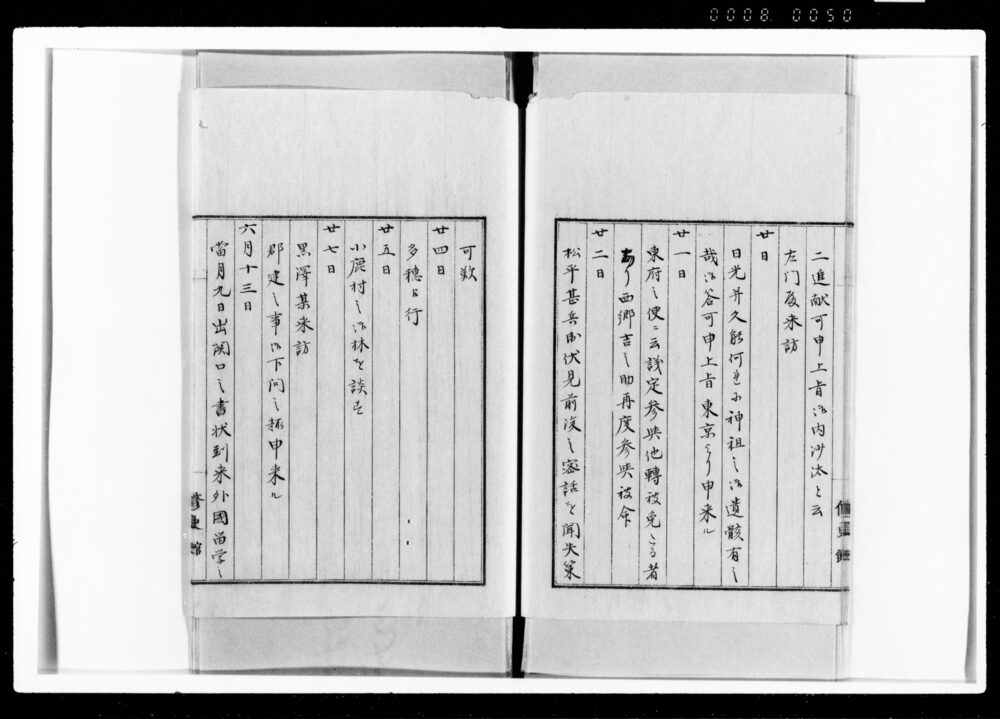 0008 0050
二進献可申上旨御内沙汰と云
左门殿来訪
廿日
日光并久能何れ尓神祖之御遺骸有之
哉御答可申上旨東京より申来ル
廿一日
東府之便ニ云議定参與他轉被免たる者
あり西郷吉之助再度参與被命
廿二日
松平甚兵衛伏見前後之密話を聞失策
可歎
廿四日
多穂に行
廿五日
小鹿村之御林を談す
廿七日
黒澤某来訪
郡建之事御下問之趣申来ル
六月十三日
當月九日出関口之書状到来外國留学之
修史館
修史館